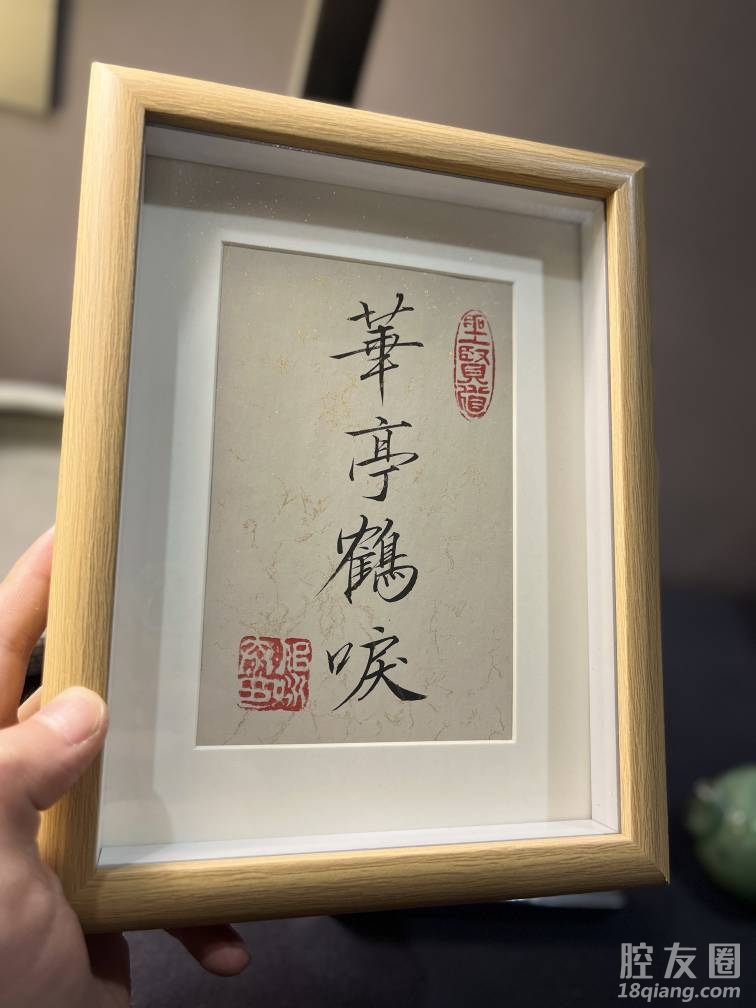 華亭鶴唳
聖賢道
腔友圈
18qiang.com